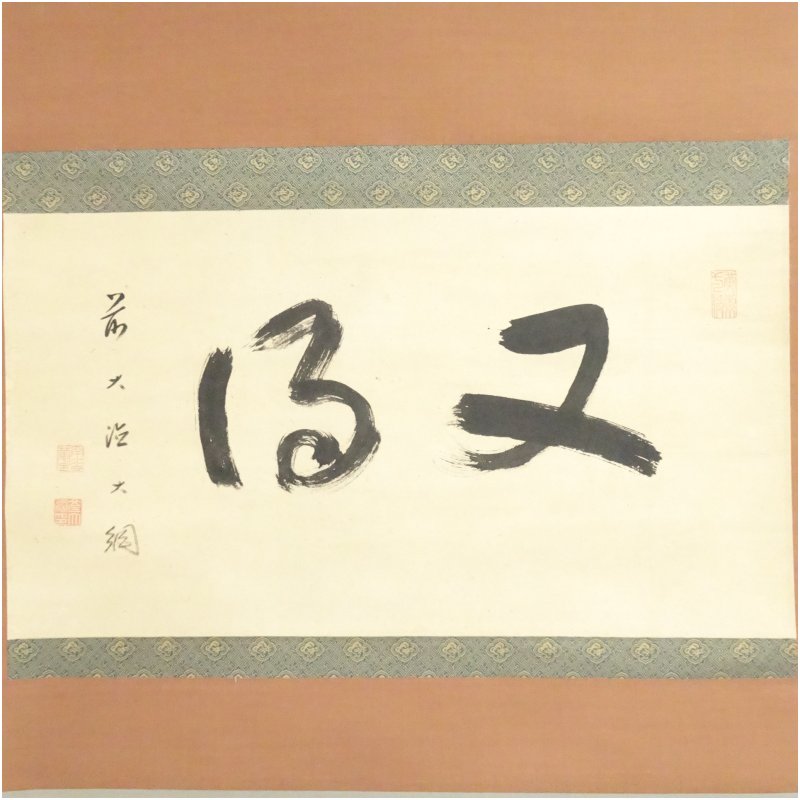 又得
前大徳大綱